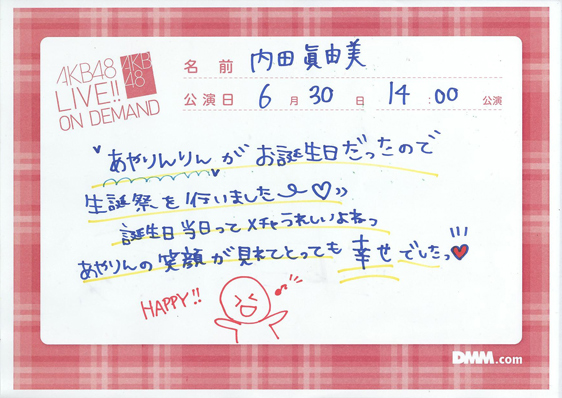 AKB48
LIVE!!
ON DEMAND
AKB
48
名前 内田眞由美
公演日 6月30日 14:00公演
"あやりんりん"がお誕生日だったので
生誕祭を行いました♡
誕生日当日ってメチャうれしいよねっ
あやりんの笑顔が見れてとっても幸せでしたっ♥
HAPPY!!
DMM.com